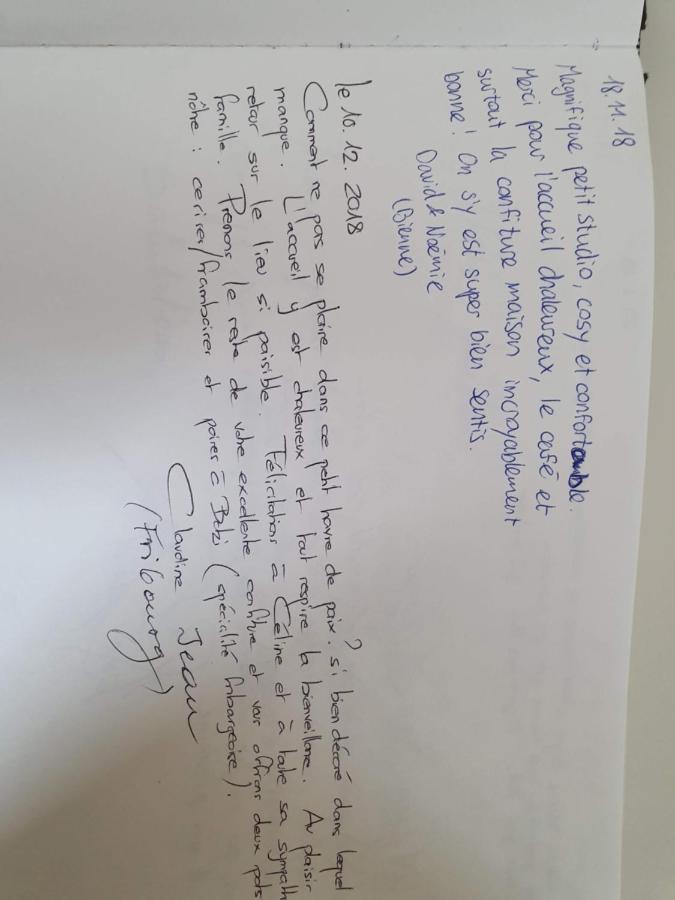 18.11.18
Magnifique petit studio, cosy et confortable.
Merci pour l'accueil chaleureux, le café et
surtout la confiture maison incroyablement
bonne! On s'y est super bien sentis.
David & Noémie
(Bienne)
le 10.12.2018
Comment ne pas se plaire dans ce petit havre de paix? si bien décoré dans lequel
manque. L'accueil y est chaleureux et tout respire la bienveillance. Au plaisir
retour sur le lieu si paisible. Félicitations à Céline et à toute sa sympath
famille. Prenons le reste de votre excellente confiture et vous offrons deux pots
nôtre : cerises/framboises et poires à Botzi (spécialité fribourgeoise).
Claudine Jean
(Fribourg)